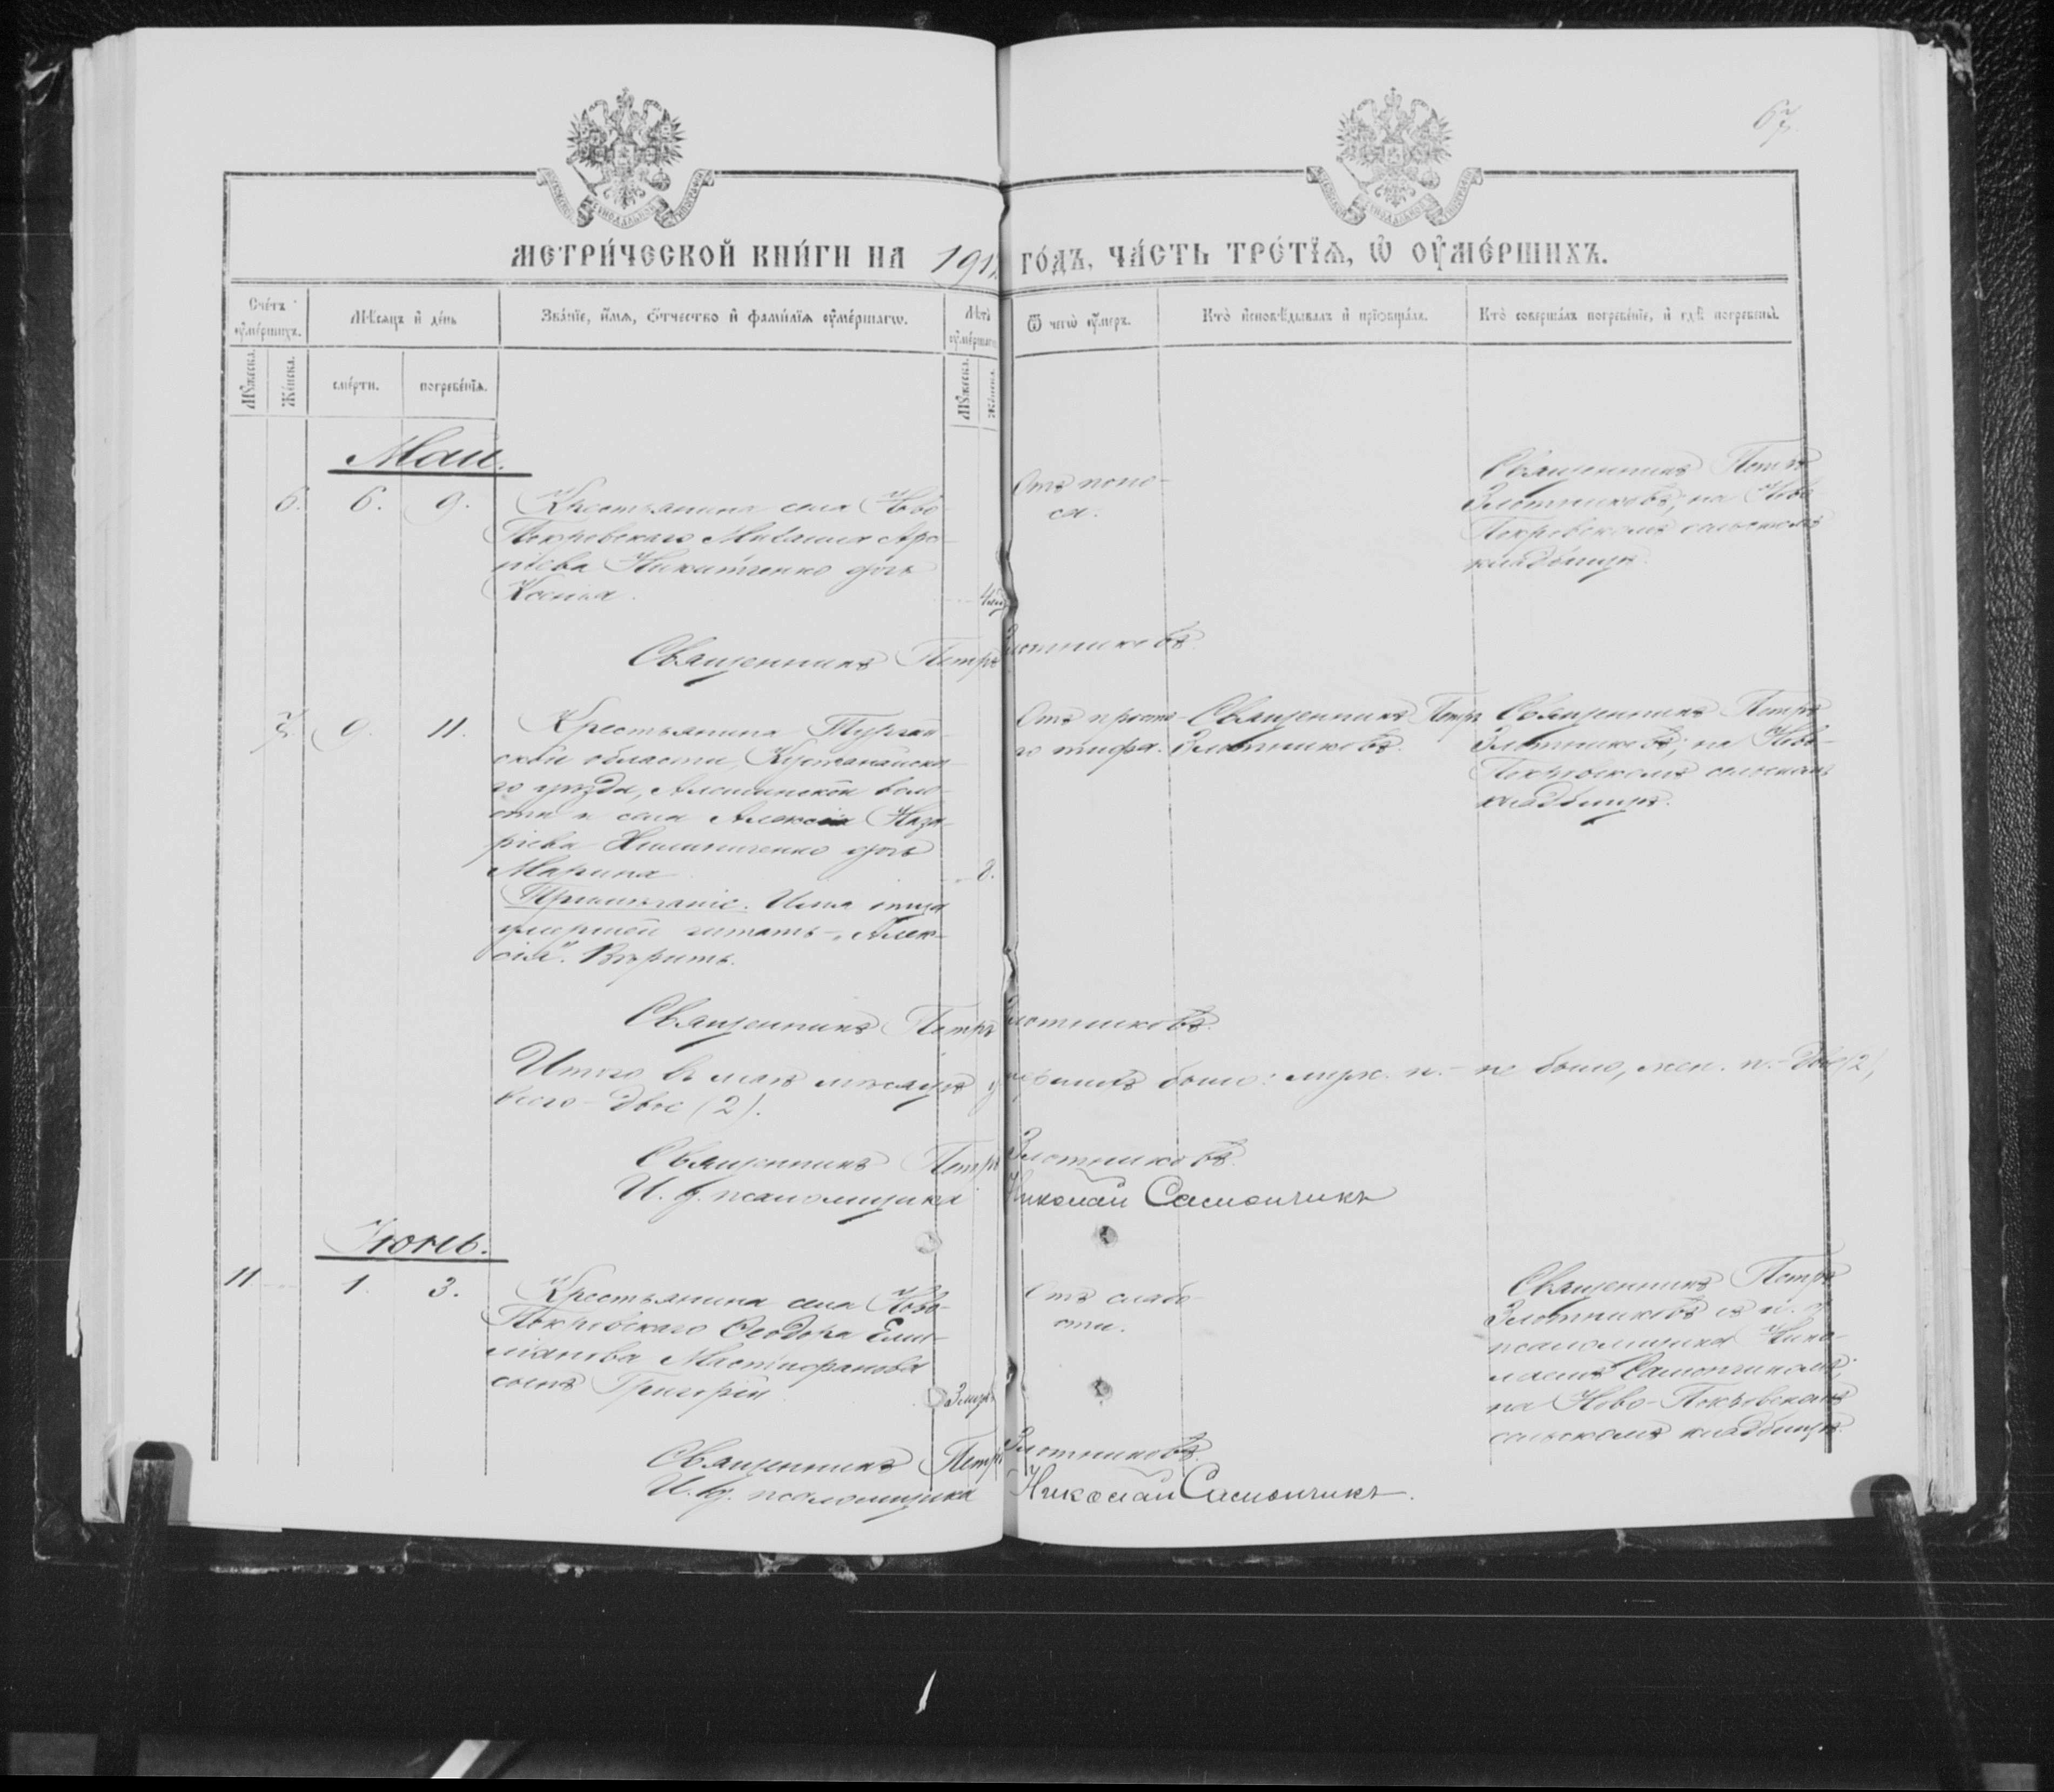 67
МЕТРИ́ЧЕСКОЙ КНИ́ГИ НА 191 ГО́ДЪ, ЧА́СТЬ ТРЕ́ТЇѦ, Ѡ҆ ОУ҆МЕ́РШИХЪ.
Сче́тъ оу҆ме́ршихъ.
Мѣ́сѧцъ и҆ де́нь
Зва́нїе, и҆́мѧ, ѻ҆́тчество и҆ фами́лїѧ оу҆ме́ршагѡ.
Лѣ́та оу҆ме́ршагѡ
Ѿ чегѡ̀ оу҆́меръ.
Кто̀ и҆сповѣ́дывалъ и҆ прїѻбща́лъ.
Кто̀ соверша́лъ погребе́нїе, и҆ гдѣ̀ погребены̀.
Мꙋ́жеска.
Же́нска.
сме́рти.
погребе́нїѧ.
Мꙋ́жеска.
Же́нска.
Май.
6. 6. 9.
Крестьянина села Ново-
Покровскаго Михаила Арсе-
ніева Никитченко дочь
Ксенія.
Отъ поно-
са.
Священникъ Петръ
Злотниковъ; на Ново-
Покровскомъ сельскомъ
кладбищѣ.
Священникъ Петръ Злотниковъ.
7. 9. 11.
Крестьянина Тургай-
ской области, Кустанайска-
го уѣзда, волос-
ти и села Алексія Наза-
ріева дочь
Марина
8.
Примѣчаніе. Имя отца
умершей читать - „Алек-
сія". Вѣрить.
Отъ
го тифа.
Священникъ Петръ
Злотниковъ.
Священникъ Петръ
Злотниковъ; на Ново-
Покровскомъ сельскомъ
кладбищѣ.
Священникъ Петръ Злотниковъ.
Итого въ маѣ мѣсяцѣ умершихъ было: муж. п. - не было, жен. п. - двѣ (2),
всего - двѣ (2).
Священникъ Петръ Злотниковъ.
И. д. псаломщика Николай Самойчикъ
Іюнь.
11 1. 3.
Крестьянина села Ново-
Покровскаго Ѳеодора Еми-
ліанова
сынъ Григорій
Отъ слабо-
сти.
Священникъ Петръ
Злотниковъ съ и. д.
псаломщика Нико-
лаемъ Самойчикомъ;
на Ново-Покровскомъ
сельскомъ кладбищѣ.
Священникъ Петръ Злотниковъ.
И. д. псаломщика Николай Самойчикъ.